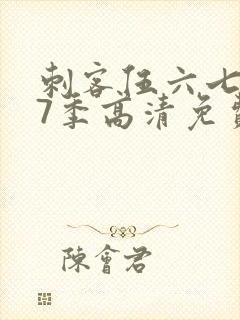 刺客伍六七
7季高清免
陳會君